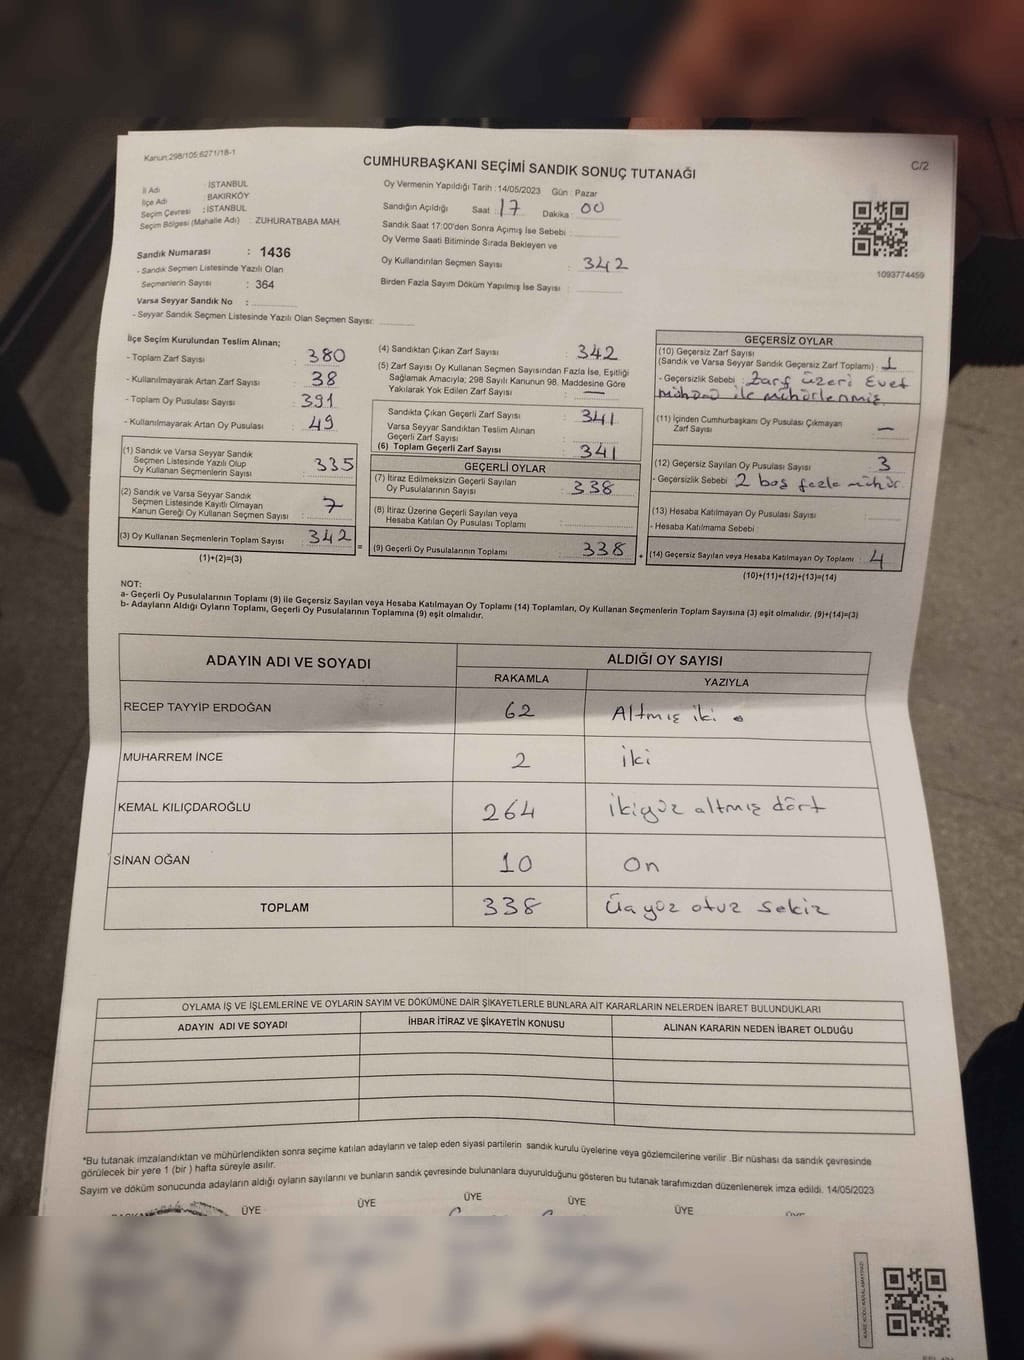 Kanun:298/105;6271/18-1
CUMHURBAŞKANI SEÇİMİ SANDIK SONUÇ TUTANAĞI
C/2
İl Adı : İSTANBUL
İlçe Adı : BAKIRKÖY
Seçim Çevresi : İSTANBUL
Seçim Bölgesi (Mahalle Adı) : ZUHURATBABA MAH.
Sandık Numarası : 1436
- Sandık Seçmen Listesinde Yazılı Olan
Seçmenlerin Sayısı : 364
Varsa Seyyar Sandık No :
- Seyyar Sandık Seçmen Listesinde Yazılı Olan Seçmen Sayısı:
Oy Vermenin Yapıldığı Tarih : 14/05/2023 Gün : Pazar
Sandığın Açıldığı Saat : 17 Dakika : 00
Sandık Saat 17:00'den Sonra Açımış İse Sebebi :
Oy Verme Saati Bitiminde Sırada Bekleyen ve
Oy Kullandırılan Seçmen Sayısı : 342
Birden Fazla Sayım Döküm Yapılmış İse Sayısı :
1093774459
İlçe Seçim Kurulundan Teslim Alınan;
- Toplam Zarf Sayısı : 380
- Kullanılmayarak Artan Zarf Sayısı : 38
- Toplam Oy Pusulası Sayısı : 391
- Kullanılmayarak Artan Oy Pusulası : 49
(1) Sandık ve Varsa Seyyar Sandık
Seçmen Listesinde Yazılı Olup
Oy Kullanan Seçmenlerin Sayısı : 335
(2) Sandık ve Varsa Seyyar Sandık
Seçmen Listesinde Kayıtlı Olmayan
Kanun Gereği Oy Kullanan Seçmen Sayısı : 7
(3) Oy Kullanan Seçmenlerin Toplam Sayısı : 342
(1)+(2)=(3)
=
(4) Sandıktan Çıkan Zarf Sayısı : 342
(5) Zarf Sayısı Oy Kullanan Seçmen Sayısından Fazla İse, Eşitliği
Sağlamak Amacıyla; 298 Sayılı Kanunun 98. Maddesine Göre
Yakılarak Yok Edilen Zarf Sayısı : —
Sandıkta Çıkan Geçerli Zarf Sayısı : 341
Varsa Seyyar Sandıktan Teslim Alınan
Geçerli Zarf Sayısı :
(6) Toplam Geçerli Zarf Sayısı : 341
GEÇERLİ OYLAR
(7) İtiraz Edilmeksizin Geçerli Sayılan
Oy Pusulalarının Sayısı : 338
(8) İtiraz Üzerine Geçerli Sayılan veya
Hesaba Katılan Oy Pusulası Toplamı :
(9) Geçerli Oy Pusulalarının Toplamı : 338
+
GEÇERSİZ OYLAR
(10) Geçersiz Zarf Sayısı
(Sandık ve Varsa Seyyar Sandık Geçersiz Zarf Toplamı) : 1
- Geçersizlik Sebebi : Zarf üzeri Evet
mührü ile mühürlenmiş
(11) İçinden Cumhurbaşkanı Oy Pusulası Çıkmayan
Zarf Sayısı : —
(12) Geçersiz Sayılan Oy Pusulası Sayısı : 3
- Geçersizlik Sebebi : 2 boş fazla mühür.
(13) Hesaba Katılmayan Oy Pusulası Sayısı :
- Hesaba Katılmama Sebebi :
(14) Geçersiz Sayılan veya Hesaba Katılmayan Oy Toplamı : 4
(10)+(11)+(12)+(13)=(14)
NOT:
a- Geçerli Oy Pusulalarının Toplamı (9) ile Geçersiz Sayılan veya Hesaba Katılmayan Oy Toplamı (14) Toplamları, Oy Kullanan Seçmenlerin Toplam Sayısına (3) eşit olmalıdır. (9)+(14)=(3)
b- Adayların Aldığı Oyların Toplamı, Geçerli Oy Pusulalarının Toplamına (9) eşit olmalıdır.
ADAYIN ADI VE SOYADI
ALDIĞI OY SAYISI
RAKAMLA YAZIYLA
RECEP TAYYİP ERDOĞAN 62 Altmış iki
MUHARREM İNCE 2 iki
KEMAL KILIÇDAROĞLU 264 ikiyüz altmış dört
SİNAN OĞAN 10 On
TOPLAM 338 Üçyüz otuz sekiz
OYLAMA İŞ VE İŞLEMLERİNE VE OYLARIN SAYIM VE DÖKÜMÜNE DAİR ŞİKAYETLERLE BUNLARA AİT KARARLARIN NELERDEN İBARET BULUNDUKLARI
ADAYIN ADI VE SOYADI İHBAR İTİRAZ VE ŞİKAYETİN KONUSU ALINAN KARARIN NEDEN İBARET OLDUĞU
*Bu tutanak imzalandıktan ve mühürlendikten sonra seçime katılan adayların ve talep eden siyasi partilerin sandık kurulu üyelerine veya gözlemcilerine verilir .Bir nüshası da sandık çevresinde
görülecek bir yere 1 (bir ) hafta süreyle asılır.
Sayım ve döküm sonucunda adayların aldığı oyların sayılarını ve bunların sandık çevresinde bulunanlara duyurulduğunu gösteren bu tutanak tarafımızdan düzenlenerek imza edildi. 14/05/2023
ÜYE ÜYE ÜYE ÜYE ÜYE